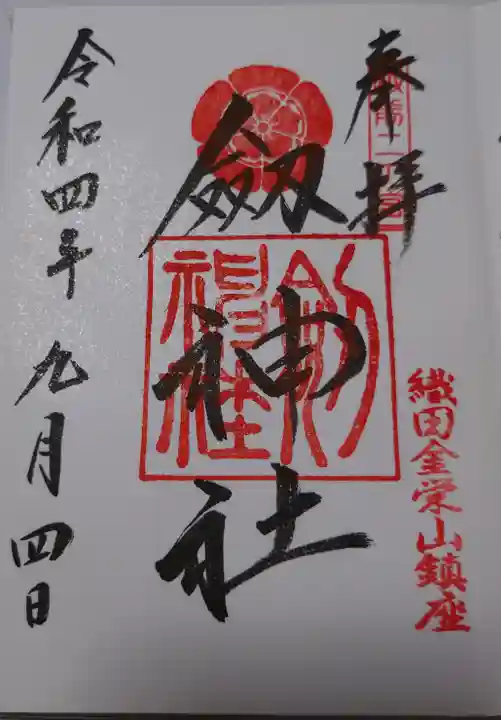 奉拝
織田金栄山鎮座
劔神社
令和四年 九月 四日